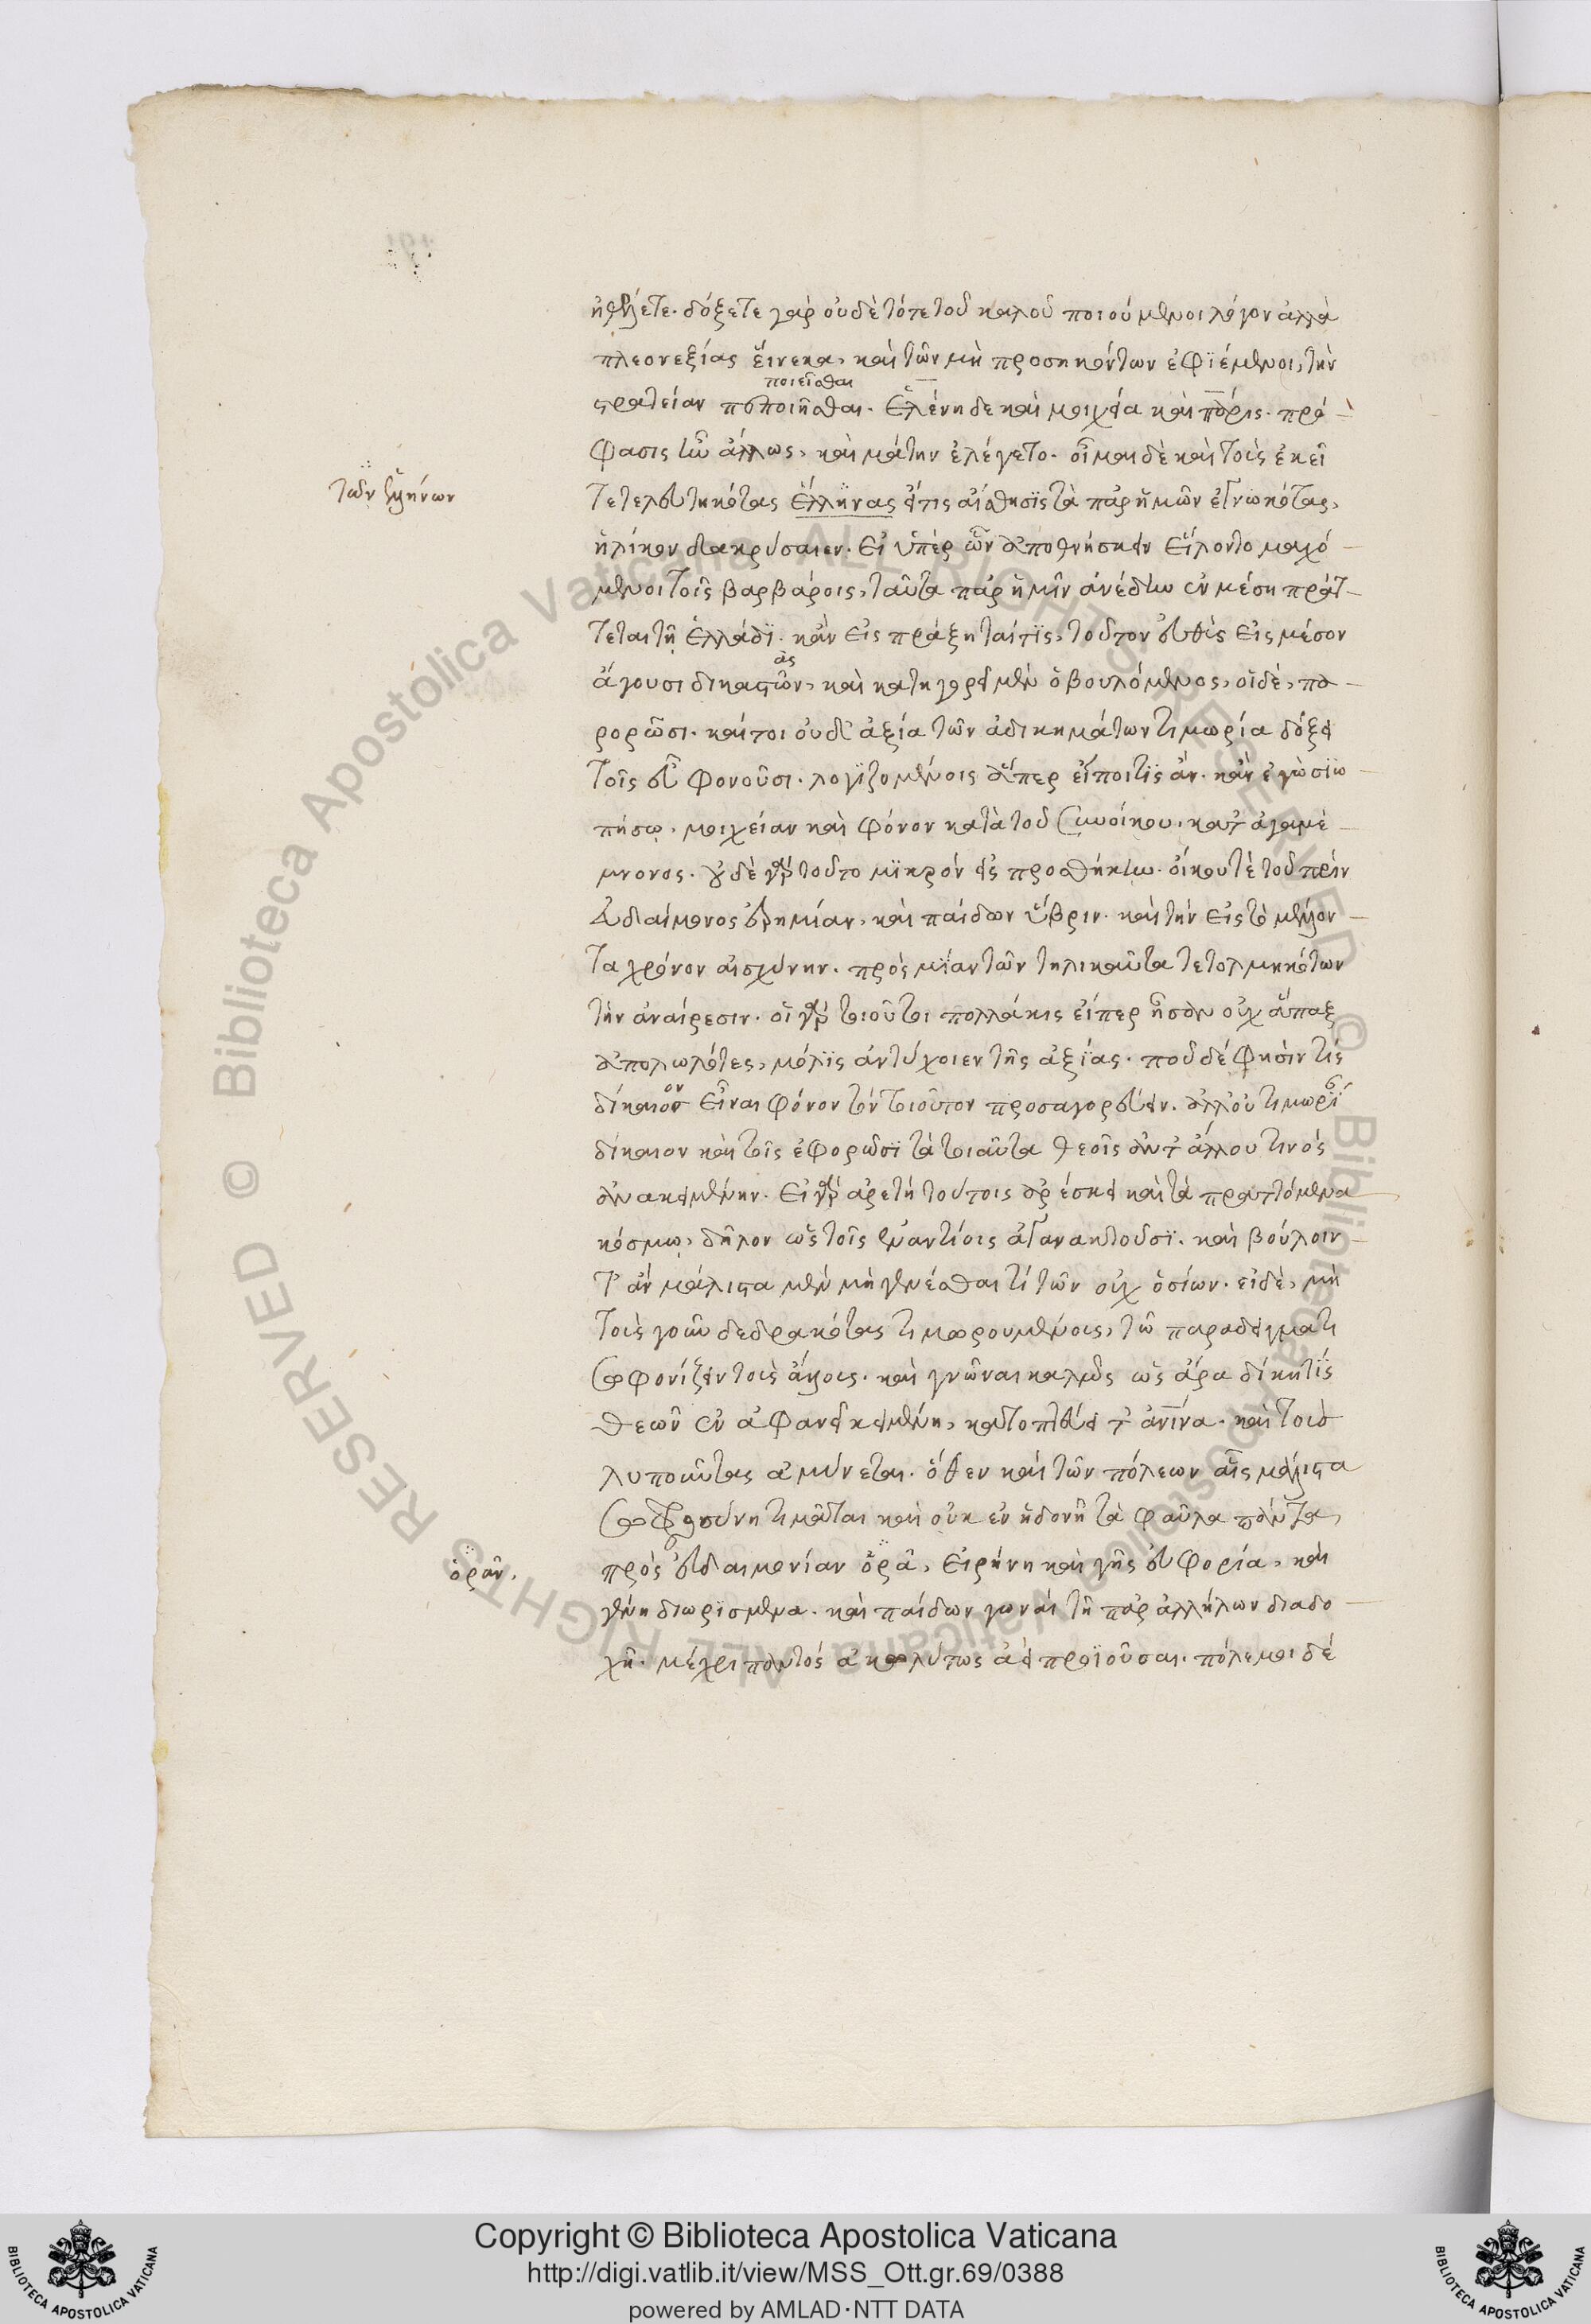 ἠθέλετε. δόξετε γὰρ οὐδὲ τότε τοῦ καλοῦ ποιούμενοι λόγον ἀλλὰ
πλεονεξίας εἵνεκα, καὶ τῶν μὴ προσηκόντων ἐφϊέμενοι, τὴν
ποιεῖσθαι
στρατείαν πεποιῆσθαι. Ἑλένη δε καὶ μοιχεία καὶ πάρις. πρό-
φασις ἦν ἄλλως, καὶ μάτην ἐλέγετο. οἶμαι δὲ καὶ τοὺς ἐκεῖ
τῶν ἑλλήνων
τετελευτηκότας ἕλληνας εἴτις αἴσθησϊς τὰ παρ ἡμῶν ἐγνωκότας,
ἡλίκον δακρύσαιεν. Εἰ ὑπὲρ ὧν ἀποθνήσκειν εἵλοντο μαχό-
μενοι τοῖς βαρβάροις, ταῦτα παρ ἡμῖν ἀνέδην ἐν μέσῃ πράτ-
τεται τῇ ἑλλάδϊ. κἂν εἰς πράξηται τϊς, τοῦτον εὐθὺς εἰς μέσον
ὰς
ἄγουσι δικαστῶν, καὶ κατηγορεῖ μὲν ὁ βουλόμενος, οἱ δὲ, πα-
ρορῶσι. καίτοι οὐδ' ἀξία τῶν ἀδικημάτων τιμωρία δόξει
τοῖς εὖ φρονοῦσι. λογϊζομένοις ἅπερ εἴποι τϊς ἄν. κἂν ἐγὼ σϊω-
πήσω, μοιχείαν καὶ φόνον κατὰ τοῦ συνοίκου, κατ ἀγαμέ-
μνονος. οὐδὲ γὰρ τοῦτο μϊκρὸν εἰς προσθήκην. οἴκου τὲ τοῦ πρὶν
εὐδαίμονος ἐρημίαν, καὶ παίδων ὕβριν. καὶ τὴν εἰς τὸ μέλλον-
τα χρόνον αἰσχύνην. πρὸς μϊαν τῶν τηλικαῦτα τετολμηκότων
τὴν ἀναίρεσιν. οἱ γὰρ τοιοῦτοι πολλάκις εἴπερ ἦσαν οὐχ ἅπαξ
ἀπολωλότες, μόλϊς ἂν τύχοιεν τῆς ἀξίας. ποῦ δέ φησίν τίς
δίκαιον εἶναι φόνον τὸν τοιοῦτον προσαγορεύειν. ἀλλ οὐ τιμωρϊ
δίκαιον καὶ τοῖς ἐφορῶσϊ τὰ τοιαῦτα θεοῖς ἀντ ἄλλου τινός
ἀνακειμένην. Εἰ γὰρ ἀρετὴ τούτοις ἀρέσκει καὶ τὰ πραττόμενα
κόσμῳ, δῆλον ὡς τοῖς ἐναντίοις ἀγανακτοῦσϊ. καὶ βούλοιν-
τ ἂν μάλιστα μὲν μὴ γενέσθαι τὶ τῶν οὐχ ὁσίων. εἰ δὲ, μὴ
τοὺς γοῦν δεδρακότας τιμωρουμένους, τῶ παραδείγματι
σωφρονίζειν τοὺς ἄλλους. καὶ γνῶναι καλῶς ὡς ἄρα δίκη τίς
θεῶν ἐν ἀφανεῖ κειμένη, κατοπτεύει τ ἀνινα. καὶ τοὺς
λυποῦντας ἀμύνεται. ὅθεν καὶ τῶν πόλεων αἷς μάλιστα
σωφροσύνη τιμᾶται καὶ οὐκ εν ἡδονῇ τὰ φαῦλα πάντα,
ὁρᾶν,
πρὸς εὐδαιμονίαν ὁρᾶ, εἰρήνη καὶ γῆς εὐφορία, καὶ
γένη διωρισμένα. καὶ παίδων γοναὶ τῇ παρ ἀλλήλων διαδο-
χῇ. μέχρι παντὸς ἀκωλύτως ἀεὶ προϊοῦσαι. πόλεμοι δέ
Copyright © Biblioteca Apostolica Vaticana
http://digi.vatlib.it/view/MSS_Ott.gr.69/0388
powered by AMLAD·NTT DATA